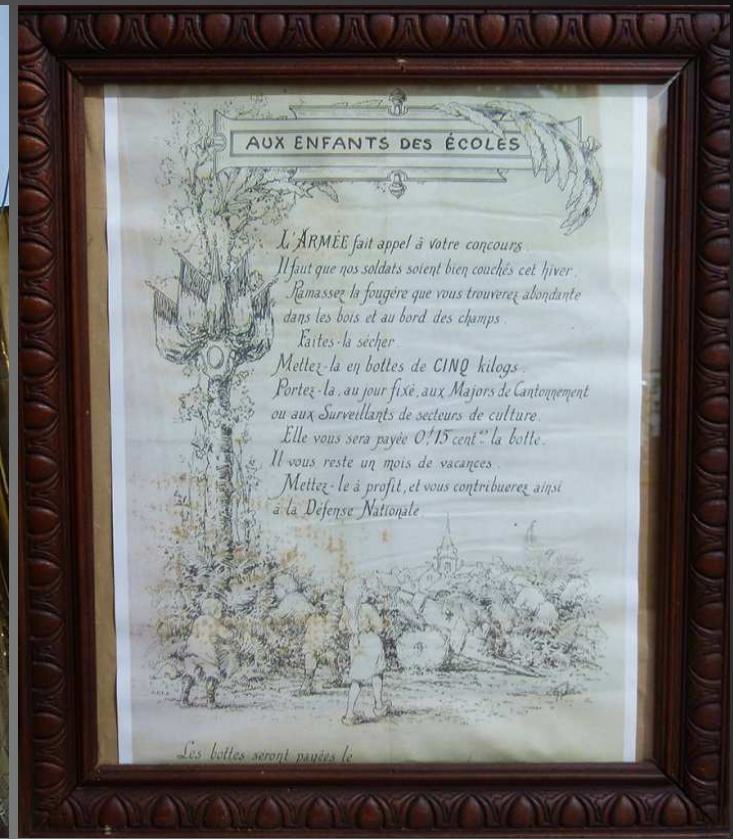 AUX ENFANTS DES ÉCOLES
L'ARMÉE fait appel à votre concours
Il faut que nos soldats soient bien couchés cet hiver.
Ramassez la fougère que vous trouverez abondante
dans les bois et au bord des champs.
Faites-la sécher.
Mettez-la en bottes de CINQ kilogs.
Portez-la, au jour fixé, aux Majors de Cantonnement
ou aux Surveillants de secteurs de culture.
Elle vous sera payée 0f15 cent.es la botte.
Il vous reste un mois de vacances.
Mettez-le à profit, et vous contribuerez ainsi
à la Défense Nationale
Les bottes seront payées le